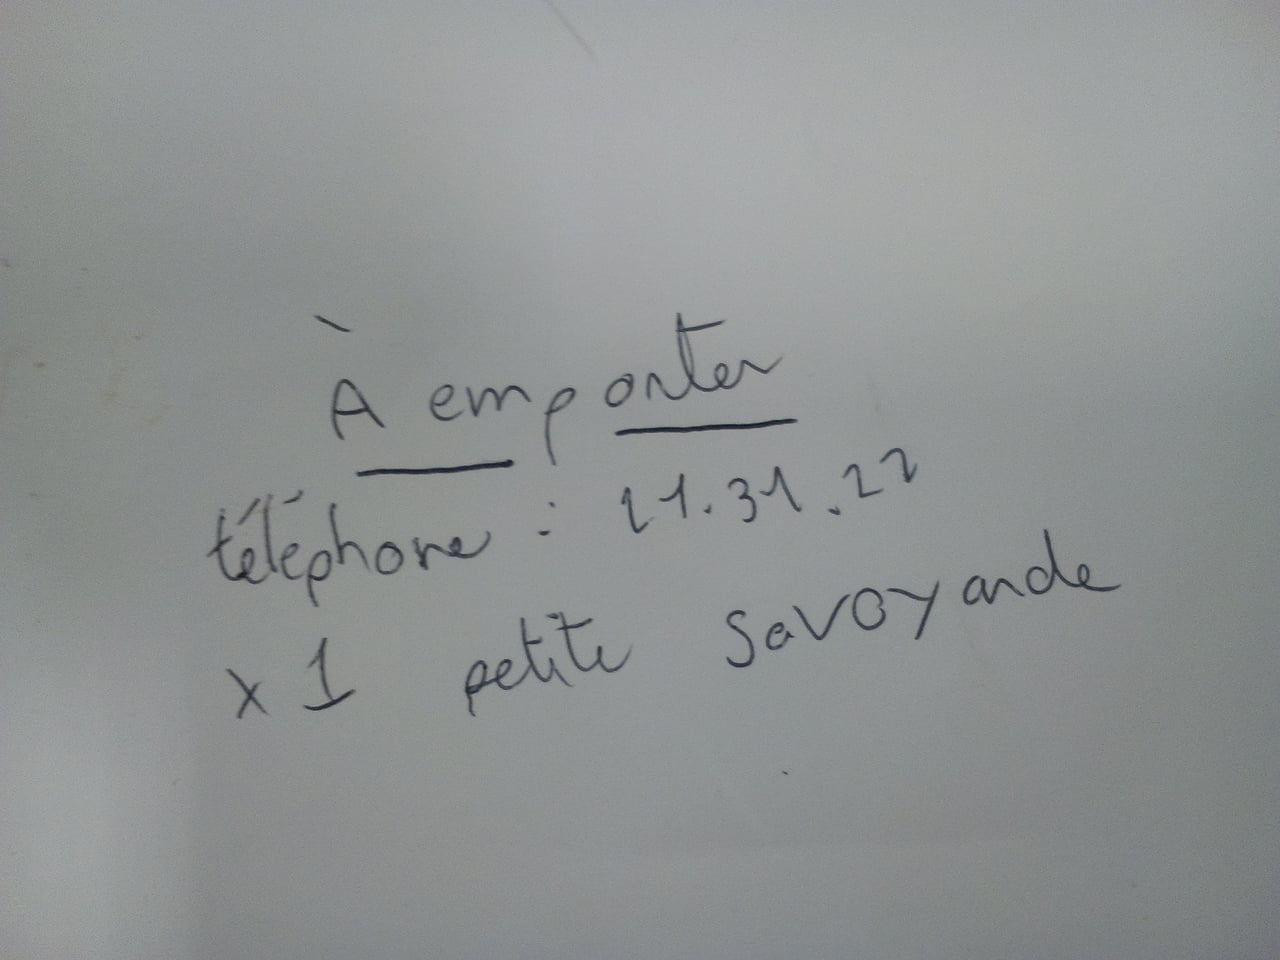 À emporter
téléphone : 21.31.22
x 1 petite Savoyarde